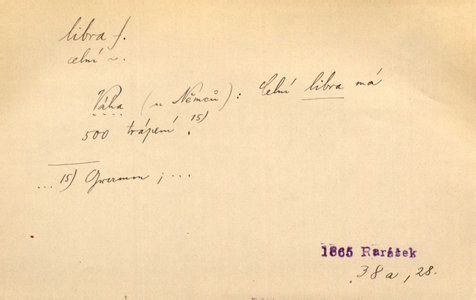 libra f.
celní ~.
Váha (u Němců): Celní libra má
500 trápení 15).
... 15) Gramm ; ...
1865 Rarášek
38a, 28.